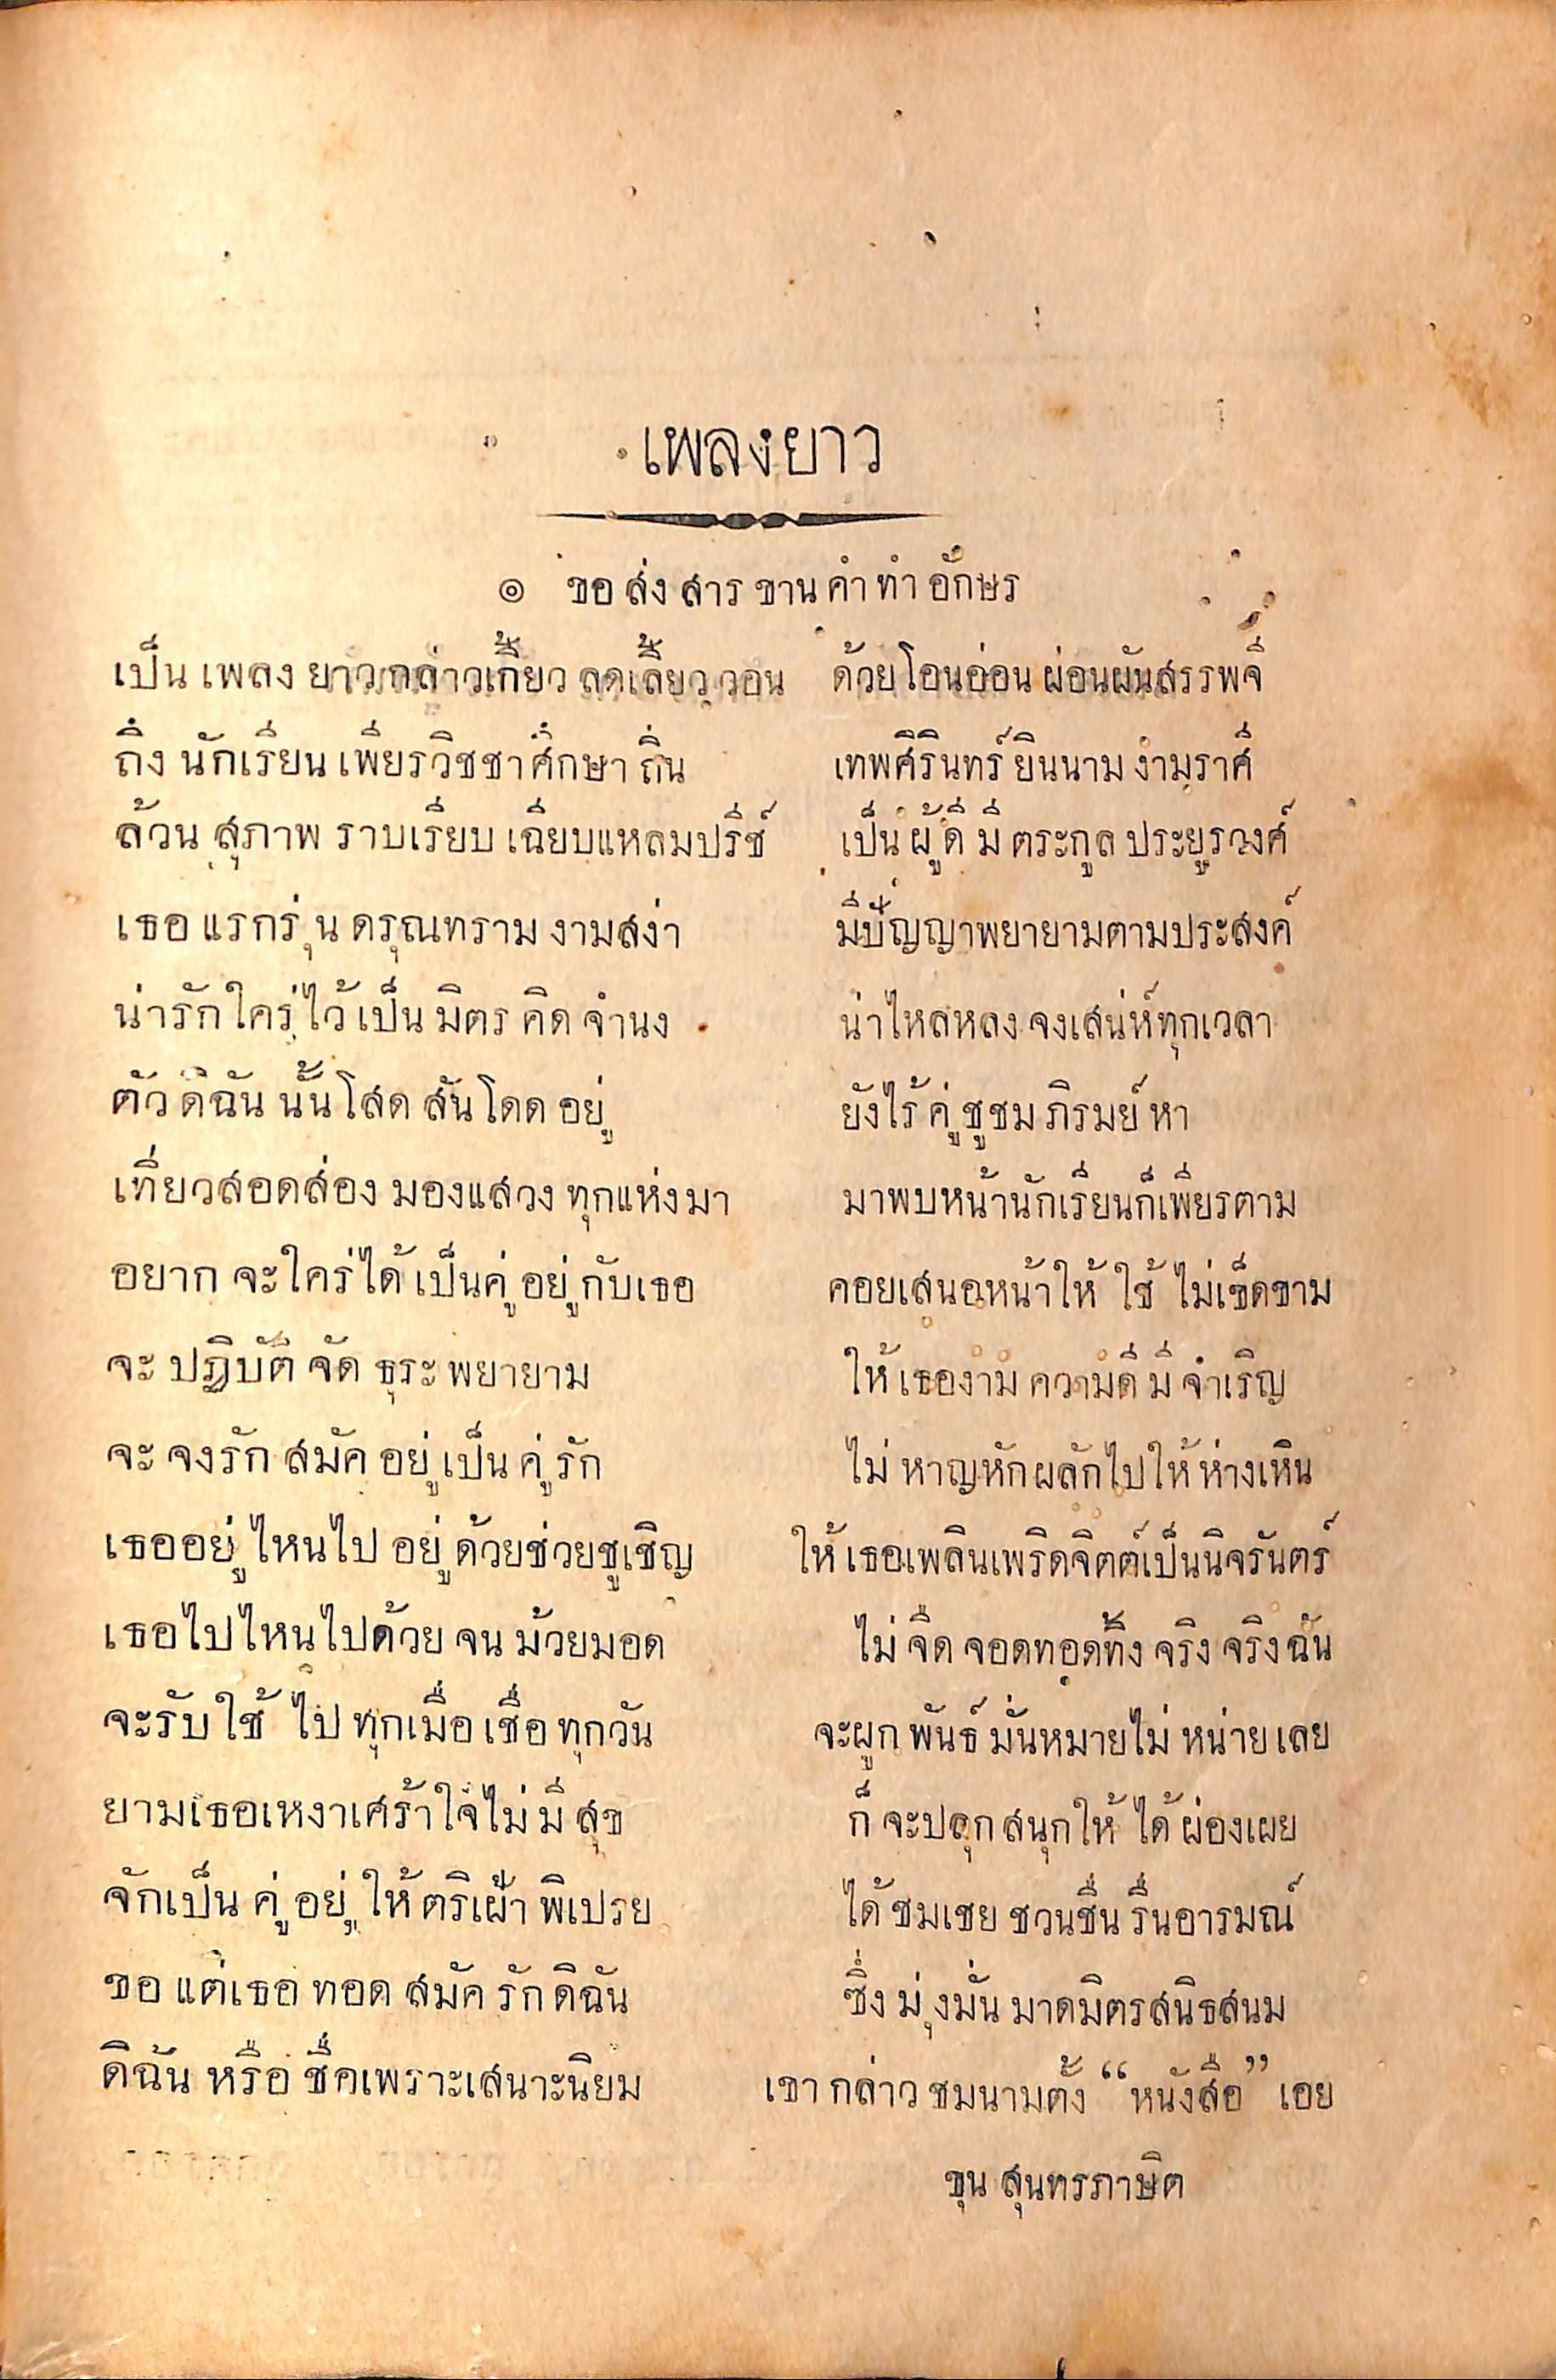 เพลงยาว
๏ ขอ ส่ง สาร ขาน คำ ทำ อักษร
เป็น เพลง ยาวกล่าวเกี้ยว ลดเลี้ยว วอน ด้วยโอนอ่อน ผ่อนผันสรรพจี
ถึง นักเรียน เพียรวิชชาศึกษา ถิ่น เทพศิรินทร์ ยินนาม งามราศี
ล้วน สุภาพ ราบเรียบ เฉียบแหลมปรีช์ เป็น ผู้ ดี มี ตระกูล ประยูรวงศ์
เธอ แรกรุ่น ดรุณทราม งามสง่า มีปัญญาพยายามตามประสงค์
น่ารักใคร่ไว้ เป็น มิตร คิด จำนง น่าไหลหลง จงเสน่ห์ทุกเวลา
ตัว ดิฉัน นั้น โสด สันโดด อยู่ ยังไร้ คู่ ชูชม ภิรมย์ หา
เที่ยวสอดส่อง มองแสวง ทุกแห่งมา มาพบหน้านักเรียนก็เพียรตาม
อยาก จะใคร่ได้ เป็นคู่ อยู่กับเธอ คอยเสนอหน้าให้ ใช้ ไม่เข็ดขาม
จะ ปฏิบัติ จัด ธุระ พยายาม ให้ เธองาม ความดี มี จำเริญ
จะ จงรัก สมัค อยู่ เป็น คู่ รัก ไม่ หาญหักผลักไปให้ห่างเหิน
เธออยู่ ไหนไป อยู่ ด้วยช่วยชูเชิญ ให้ เธอเพลินเพริดจิตต์เป็นนิจรันตร์
เธอไปไหนไปด้วย จน ม้วยมอด ไม่ จืด จอดทอดทิ้ง จริง จริงฉัน
จะรับ ใช้ ไป ทุกเมื่อ เชื่อ ทุกวัน จะผูก พันธ์ มั่นหมายไม่ หน่าย เลย
ยามเธอเหงาเศร้าใจไม่ มี สุข ก็ จะปลุก สนุกให้ ได้ ผ่องเผย
จักเป็น คู่ อยู่ ให้ ตริเฝ้า พิเปรย ได้ ชมเชย ชวนชื่น รื่นอารมณ์
ขอ แต่เธอ ทอด สมัค รัก ดิฉัน ซึ่ง มุ่งมั่น มาดมิตรสนิธสนม
ดิฉัน หรือ ชื่อเพราะเสนาะนิยม เขา กล่าว ชมนามตั้ง “หนังสือ” เอย
ขุน สุนทรภาษิต